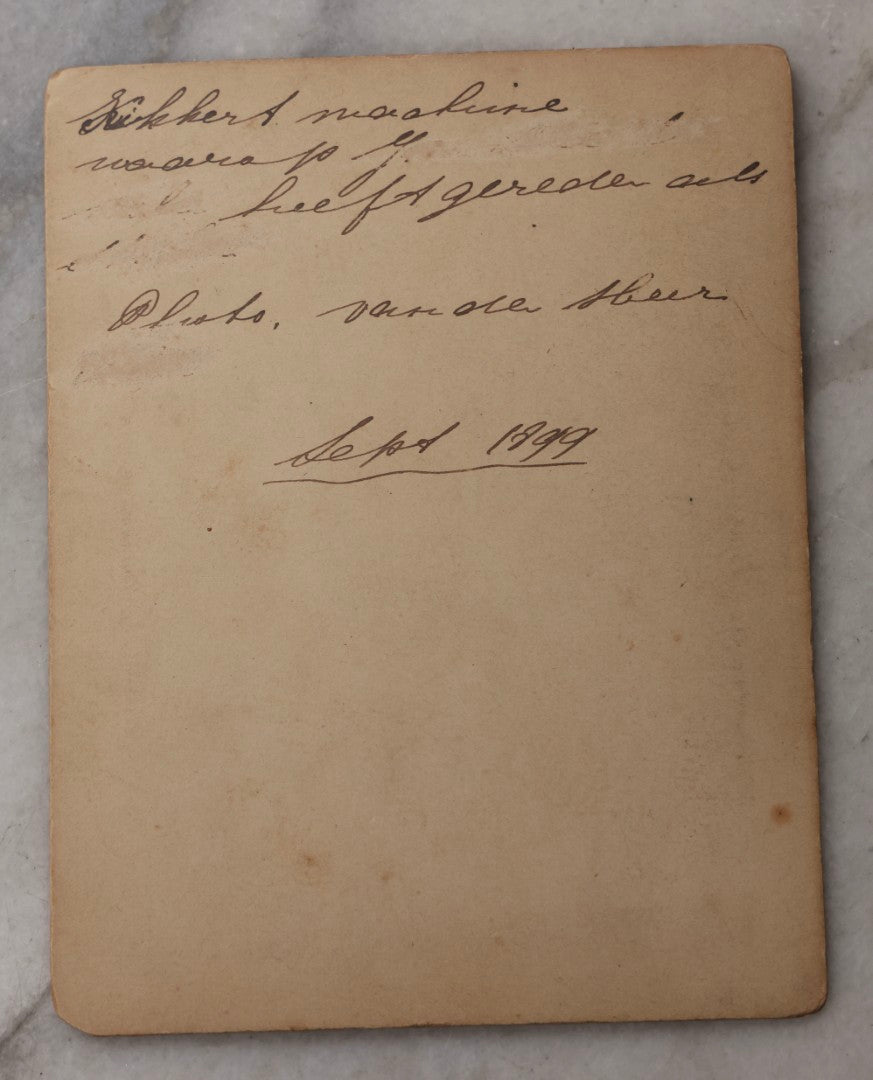 Kikkert machine
waarop Y
heeft gereden als
Photo. van der Heer
Sept 1899